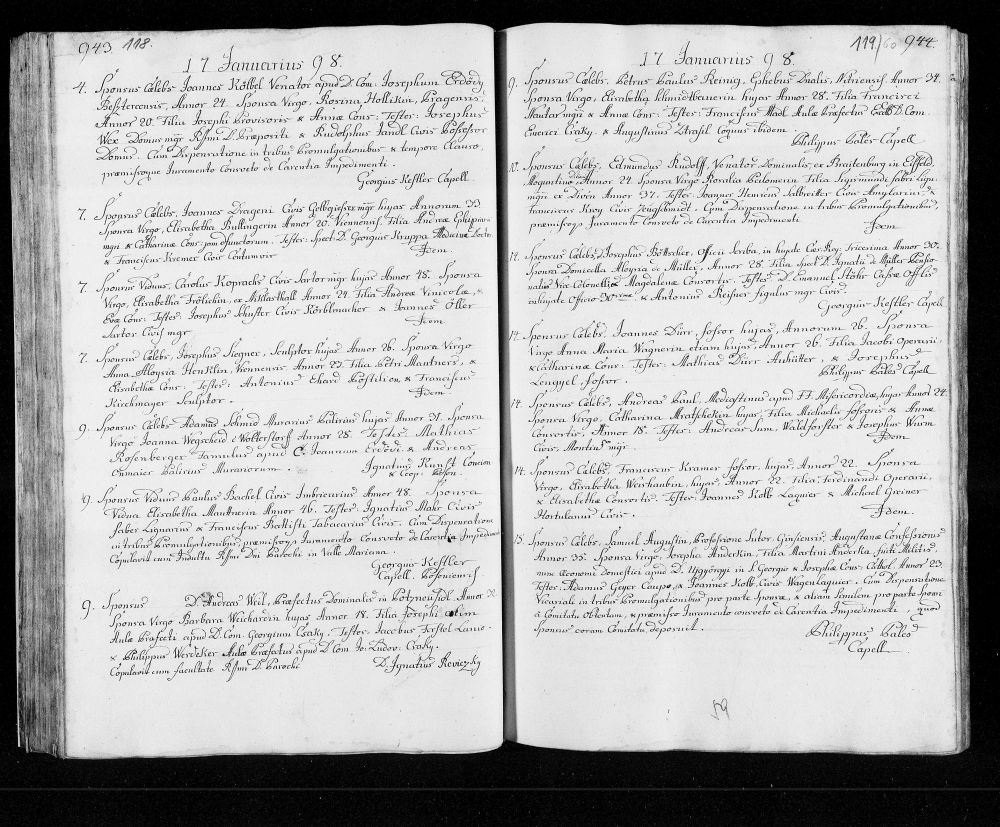 943. 118.
17 Januarius 98.
4. Sponsus Cælebs Joannes Kölbel Venator apud D. Com. Josephum Erdödy
Besztercensis, Annor 24. Sponsa Virgo, Rosina Hollikin, Pragensis,
Annor 20. Filia Josephi Provisoris & Annæ Cons: Testes: Josephus
Wex Domus mgr Rssmi D. Præpositi & Rudolphus Jandl Civis Possessor
Domus. Cum Dispensatione in tribus Promulgationibus & tempore Clauso,
præmissoque Juramento Consveto de Carentia Impedimenti.
Georgius Kestler Capell.
7. Sponsus Cælebs, Joannes Drageni Civis Gelbgiesser mgr hujas Annorum 33
Sponsa Virgo, Elisabetha Bullingerin Annor 20. Viennensis, Filia Andreæ
mgri & Catharinæ Cons: jam defunctorum. Testes: Spect. D. Georgius Kruppa Medicinæ Doctor
& Franciscus Kremer Civis Centumvir
Idem.
7. Sponsus Viduus, Carolus Koprachs Civis Sartor mgr hujas Annor 48. Sponsa
Virgo, Elisabetha Frölichin, ex Miklasthall Annor 24. Filia Andreæ Vinicolæ, &
Evæ Cons: Testes: Josephus Schuster Civis Körblmacher & Joannes Öller
Sartor Civis mgr
Idem.
7. Sponsus Cælebs, Josephus Siegner, Sculptor hujas Annor 26. Sponsa Virgo
Anna Aloysia Henschlin, Viennensis Annor 22. Filia Petri Mautners, &
Elisabethæ Cons: Testes: Antonius Ehard Postilion & Franciscus
Kirchmayer Sculptor.
Idem.
9. Sponsus Cælebs Adamus Schmid Murarius Palirius hujas Annor 31. Sponsa
Virgo Joanna Wegscheid è Woltersdorff Annor 28. Testes: Mathias
Rosenberger Famulus apud C. Joannem Erdödi & Andreas
Enmaier Palirius Murariorum.
Ignatius Kunst Concion
& Coop. Poson.
9. Sponsus Viduus Paulus Bachel Civis Imbricarius Annor 48. Sponsa
Vidua Elisabetha Mautnerin Annor 46. Testes: Ignatius Mahr Civis
faber Lignarius & Franciscus Battisti Tabacarius Civis. Cum Dispensatione
in tribus Promulgationibus præmissoque Juramento Consveto de Carentia Impedimenti
Copulavit cum Indultu Rssmi Dni Parochi in Valle Mariana.
Georgius Kestler
Capell. Posoniensis.
9. Sponsus D. Andreas Weil, Præfectus Dominalis in Potzneusidl Annor 32.
Sponsa Virgo Barbara Weichardin hujas Annor 18. Filia Josephi olim
Aulæ Præfecti apud D. Com. Georgium Csaky. Testes: Jacobus Ferstel Lanio
& Philippus Werdeker Aulæ Præfectus apud D. Com. Jo: Ludov: Csaky.
Copulavit cum facultate Rssmi D. Parochi D. Ignatius Reviczky
119/60 944.
17 Januarius 98.
9. Sponsus Cælebs. Petrus Paulus Reinig, Ephebus Dualis, Nitriensis Annor 34.
Sponsa Virgo, Elisabetha Schmidtbauerin hujas Annor 28. Filia Francisci
Nautar mgri & Annæ Cons: Testes: Franciscus Madl Aulæ Præfectus Exell D. Com.
Emerici Csaky. & Augustinus Strasil Coquus ibidem.
Philippus Bales Capell.
10. Sponsus Cælebs, Edmundus Rudolff Venator Dominalis, ex Breitenburg in Eisfeld,
Moguntina Annor 24. Sponsa Virgo Rosalia Peilomerin Filia Sigismundi fabri Lign:
mgri ex Diven Annor 37. Testes: Joannes Henricus Salbreitter Civis Amylarius, &
Franciscus Kroy Civis Zeugschmidt. Cum Dispensatione in tribus Promulgationibus,
præmissoque Juramento Consveto de Carentia Impedimenti.
Idem
14. Sponsus Cælebs, Josephus Böttscher, Officii Scriba, in hujate Cæs. Reg. Tricesima Annor 30.
Sponsa Domicella Aloysia de Müller, Annor 28. Filia Spect. D. Ignatii de Müller Pensio-
nalis Vice Colonellii & Magdalenæ Consortis. Testes: D. Emanuel Stöhr Cassæ Offlis
enhujate Officio 30mæ & Antonius Reisner figulus mgr Civis.
Georgius Kestler Capell
14. Sponsus Cælebs, Joannes Dürr, fossor hujas, Annorum 26. Sponsa
Virgo Anna Maria Wagnerin etiam hujas, Annor 26. Filia Jacobi Operarii,
& Catharinæ Cons: Testes: Mathias Dürr Anhütter, & Josephus
Lengyel fossor.
Philippus Bales Capell.
14. Sponsus Cælebs, Andreas Paul, Mediastinus apud FF. Misericordiæ, hujas Annor 24.
Sponsa Virgo, Catharina Mratschekin hujas, Filia Michaelis fossoris & Annæ
Consortis, Annor 18. Testes: Andreas Sum, Waldforster & Josephus Wurm
Civis, Montium mgr.
Idem
14. Sponsus Cælebs, Franciscus Kramer fossor, hujas, Annor 22. Sponsa
Virgo, Elisabetha Weishaubin, hujas, Annor 22. Filia Ferdinandi Operarii,
& Elisabethæ Consortis. Testes Joannes Kolb Laquier & Michael Greiner
Hortulanus Civis.
Idem.
15. Sponsus Cælebs, Samuel Augustin, Professione Sutor, Ginsiensis, Augustanæ Confessionis
Annor 35. Sponsa Virgo, Josepha Anderkin, Filia Martini Anderka, fuitè Militis,
nunc Oeconomi domestici apud D. Ujgyörgyi in S. Georgio & Josephæ Cons: Cathol. Annor 23
Testes: Adamus Geyer Caupo, & Joannes Kolb, Civis Wagenlaquier. Cum Dispensatione
Vicariali in tribus Promulgationibus pro parte Sponsæ, & aliàm similem pro parte Sponsi
à Comitatu Obtentam, & præmisso Juramento consveto de Carentia Impedimenti, quod
Sponsus coram Comitatu deposuit.
Philippus Bales
Capell.
59